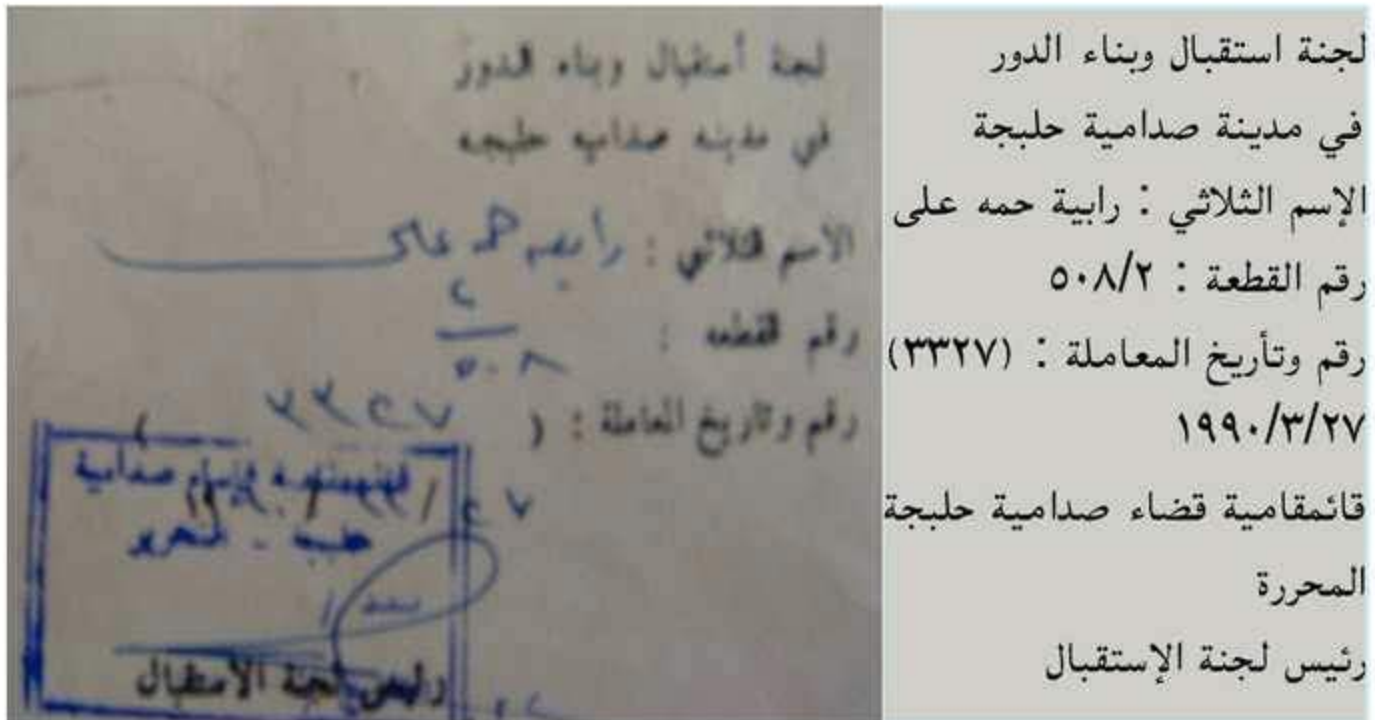 لجنة أستقبال وبناء الدور
في مدينه صداميه حلبجه
الاسم الثلاثي : رابيه حمه على
رقم القطعه : ٢/٥٠٨
رقم وتاريخ المعاملة : ( ٣٣٢٧ )
٢٧ / ٣ /
صدامية
رئيس لجنة الأستقبال
لجنة استقبال وبناء الدور
في مدينة صدامية حلبجة
الإسم الثلاثي : رابية حمه على
رقم القطعة : ٥٠٨/٢
رقم وتأريخ المعاملة : (٣٣٢٧)
١٩٩٠/٣/٢٧
قائمقامية قضاء صدامية حلبجة
المحررة
رئيس لجنة الإستقبال